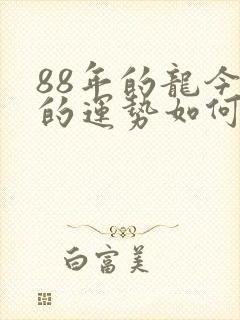 88年的龍今
的運勢如何
白富美